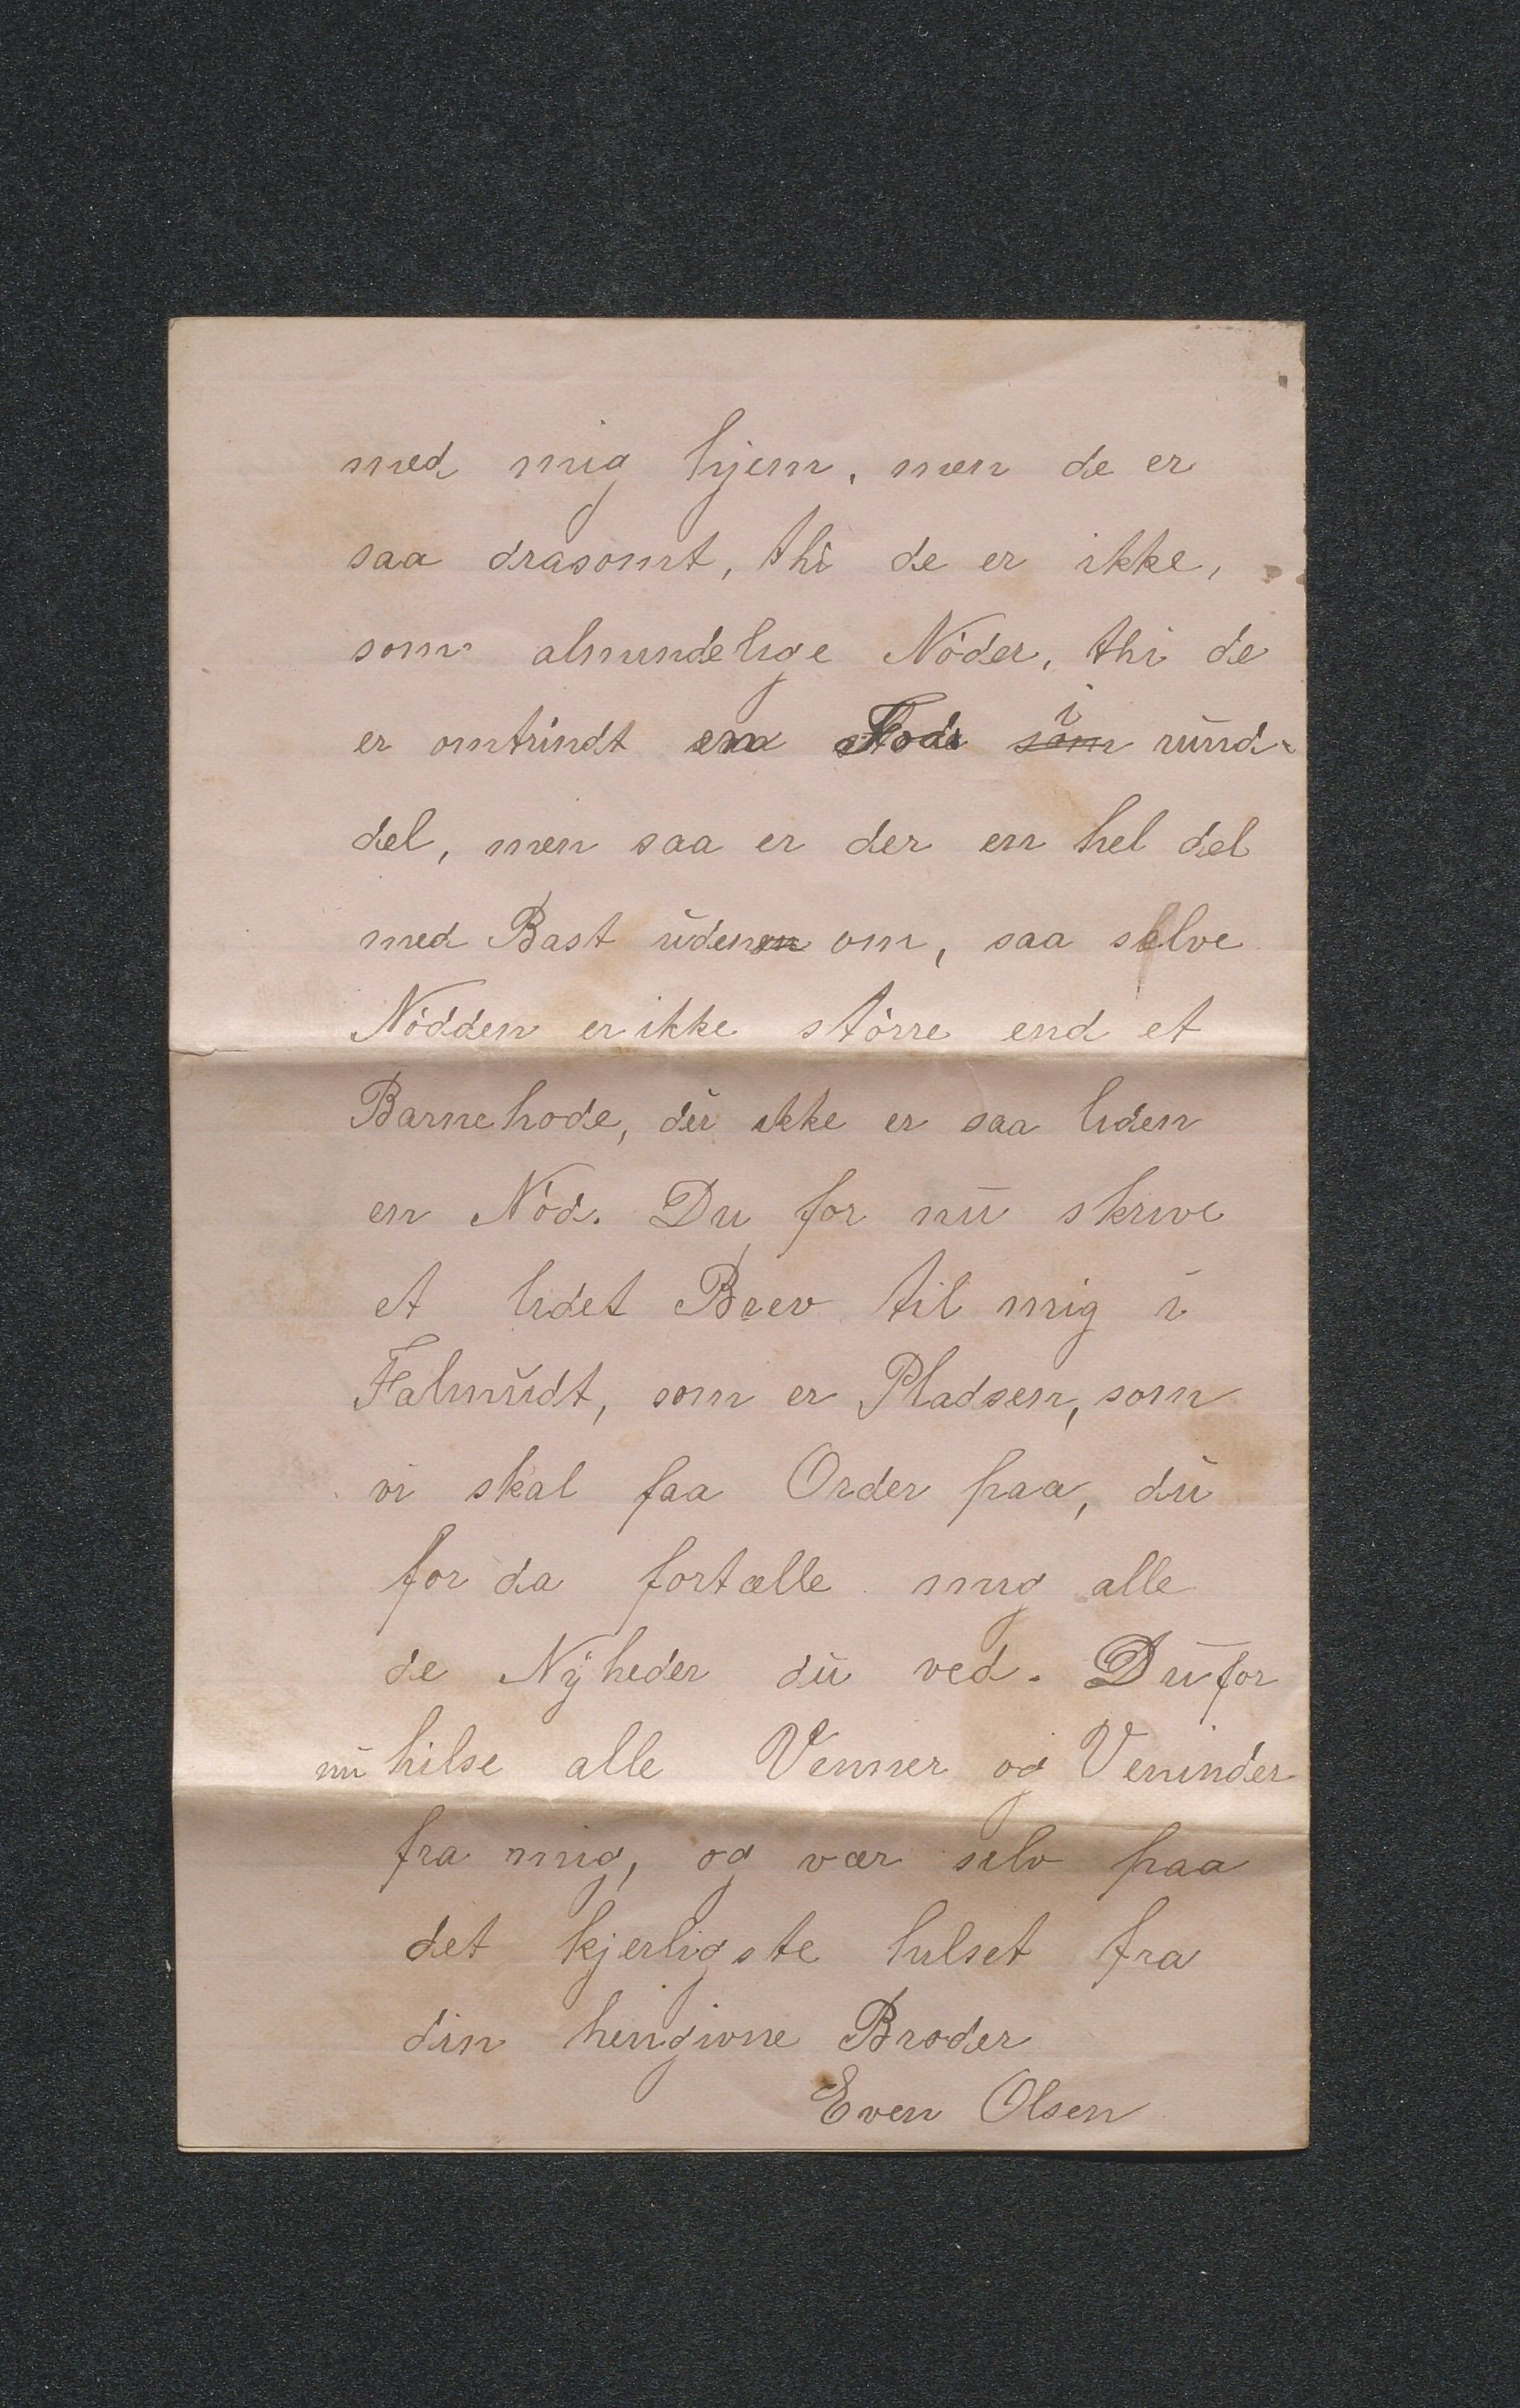 med mig hjem, men de er
saa drasomt, thi de er ikke,
som almindelige Nöder, thi de
er omtrindt en Fode i rund-
del, men saa er der en hel del
med Bast uden om, saa selve
Nödden er ikke större end et
Barnehode, der ikke er saa liden
en Nöd. Du for nu skrive
et lidet Brev til mig i
Falmudt, som er Pladsen, som
vi skal faa Order paa, du
for da fortælle mig alle
de Nyheder du ved. Du for
nu hilse alle Venner og Veninder
fra mig, og vær selv paa
det kjerligste hilset fra
din hengivne Broder
Even Olsen